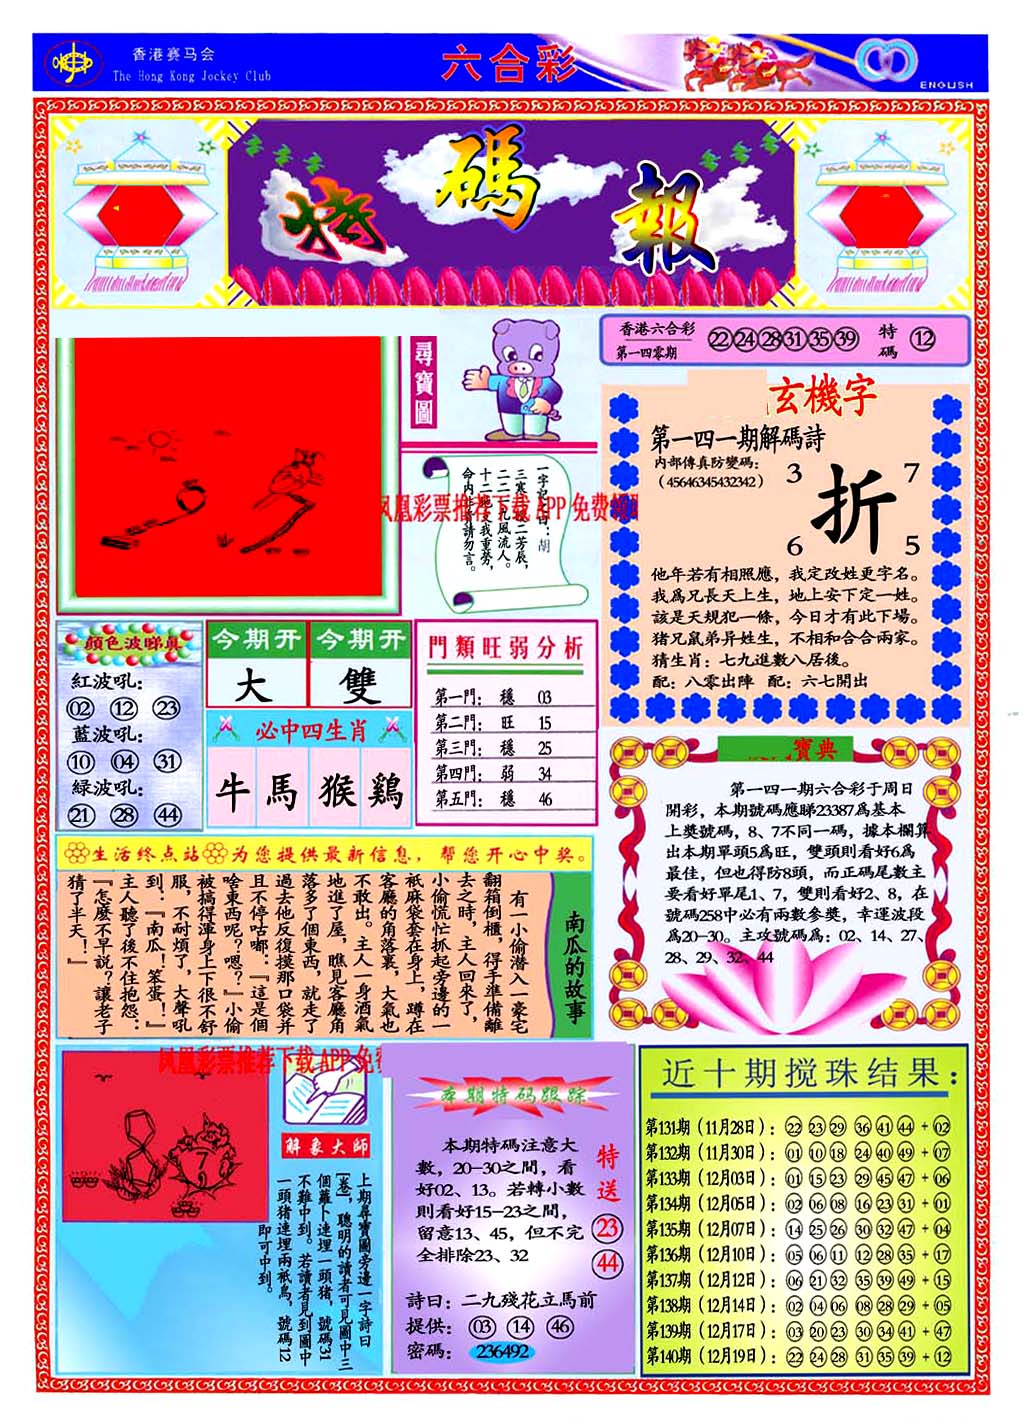 香港赛马会
The Hong Kong Jockey Club
六合彩
ENGLISH
特碼報
尋寶圖
香港六合彩
第一四零期
22 24 28 31 35 39
特碼
12
玄機字
第一四一期解碼詩
内部傳真防變碼：
（45646345432342）
3 7
折
6 5
他年若有相照應，我定改姓更字名。
我爲兄長天上生，地上安下定一姓。
該是天規犯一條，今日才有此下場。
猪兄鼠弟异姓生，不相和合合兩家。
猜生肖：七九進數八居後。
配：八零出陣 配：六七開出
命内
凤凰彩票推荐下载 APP 免费
顏色波睇真
紅波吼：
02 12 23
藍波吼：
10 04 31
緑波吼：
21 28 44
今期开 今期开
大 雙
必中四生肖
牛 馬 猴 鷄
門類旺弱分析
第一門： 穩 03
第二門： 旺 15
第三門： 穩 25
第四門： 弱 34
第五門： 穩 46
寶典
第一四一期六合彩于周日
開彩，本期號碼應睇23387爲基本
上獎號碼，8、7不同一碼，據本欄算
出本期單頭5爲旺，雙頭則看好6爲
最佳，但也得防8頭，而正碼尾數主
要看好單尾1、7，雙則看好2、8，在
號碼258中必有兩數參獎，幸運波段
爲20-30。主攻號碼爲：02、14、27、
28、29、32、44
生活终点站 为您提供最新信息，帮您开心中奖。
南瓜的故事
有一小偷潜入一豪宅
翻箱倒櫃，得手準備離
去之時，主人回來了，
小偷慌忙抓起旁邊的一
衹麻袋套在身上，蹲在
客廳的角落裏，大氣也
不敢出。主人一身酒氣
地進了屋，瞧見客廳角
落多了個東西，就走了
過去他反復摸那口袋并
且不停咕嘟：『這是個
啥東西呢？嗯？』小偷
被搞得渾身上下很不舒
服，不耐煩了，大聲吼
到：『南瓜！笨蛋！』
主人聽了後不住抱怨：
『怎麽不早説？讓老子
猜了半天！』
凤凰彩票推荐下载 APP 免费
解象大師
上期尋寶圖旁邊一字詩曰
[卷]，聰明的讀者可見圖中三
個蘿卜連埋一頭猪，號碼31
不難中到。若讀者見到圖中
一頭猪連埋兩衹鳥，號碼12
即可中到。
本期特码跟踪
本期特碼注意大
數，20-30之間，看
好02、13。若轉小數
則看好15-23之間，
留意13、45，但不完
全排除23、32
特送
23
44
詩曰：二九殘花立馬前
提供： 03 14 46
密碼： 236492
近十期搅珠结果：
第131期（11月28日）： 22 23 29 36 41 44 + 02
第132期（11月30日）： 01 10 18 24 40 49 + 07
第133期（12月03日）： 01 15 23 29 45 47 + 06
第134期（12月05日）： 02 06 08 16 23 31 + 01
第135期（12月07日）： 14 25 26 30 32 47 + 04
第136期（12月10日）： 05 06 11 12 28 35 + 17
第137期（12月12日）： 06 21 32 35 39 49 + 15
第138期（12月14日）： 02 04 06 08 28 29 + 05
第139期（12月17日）： 03 20 23 30 34 41 + 47
第140期（12月19日）： 22 24 28 31 35 39 + 12